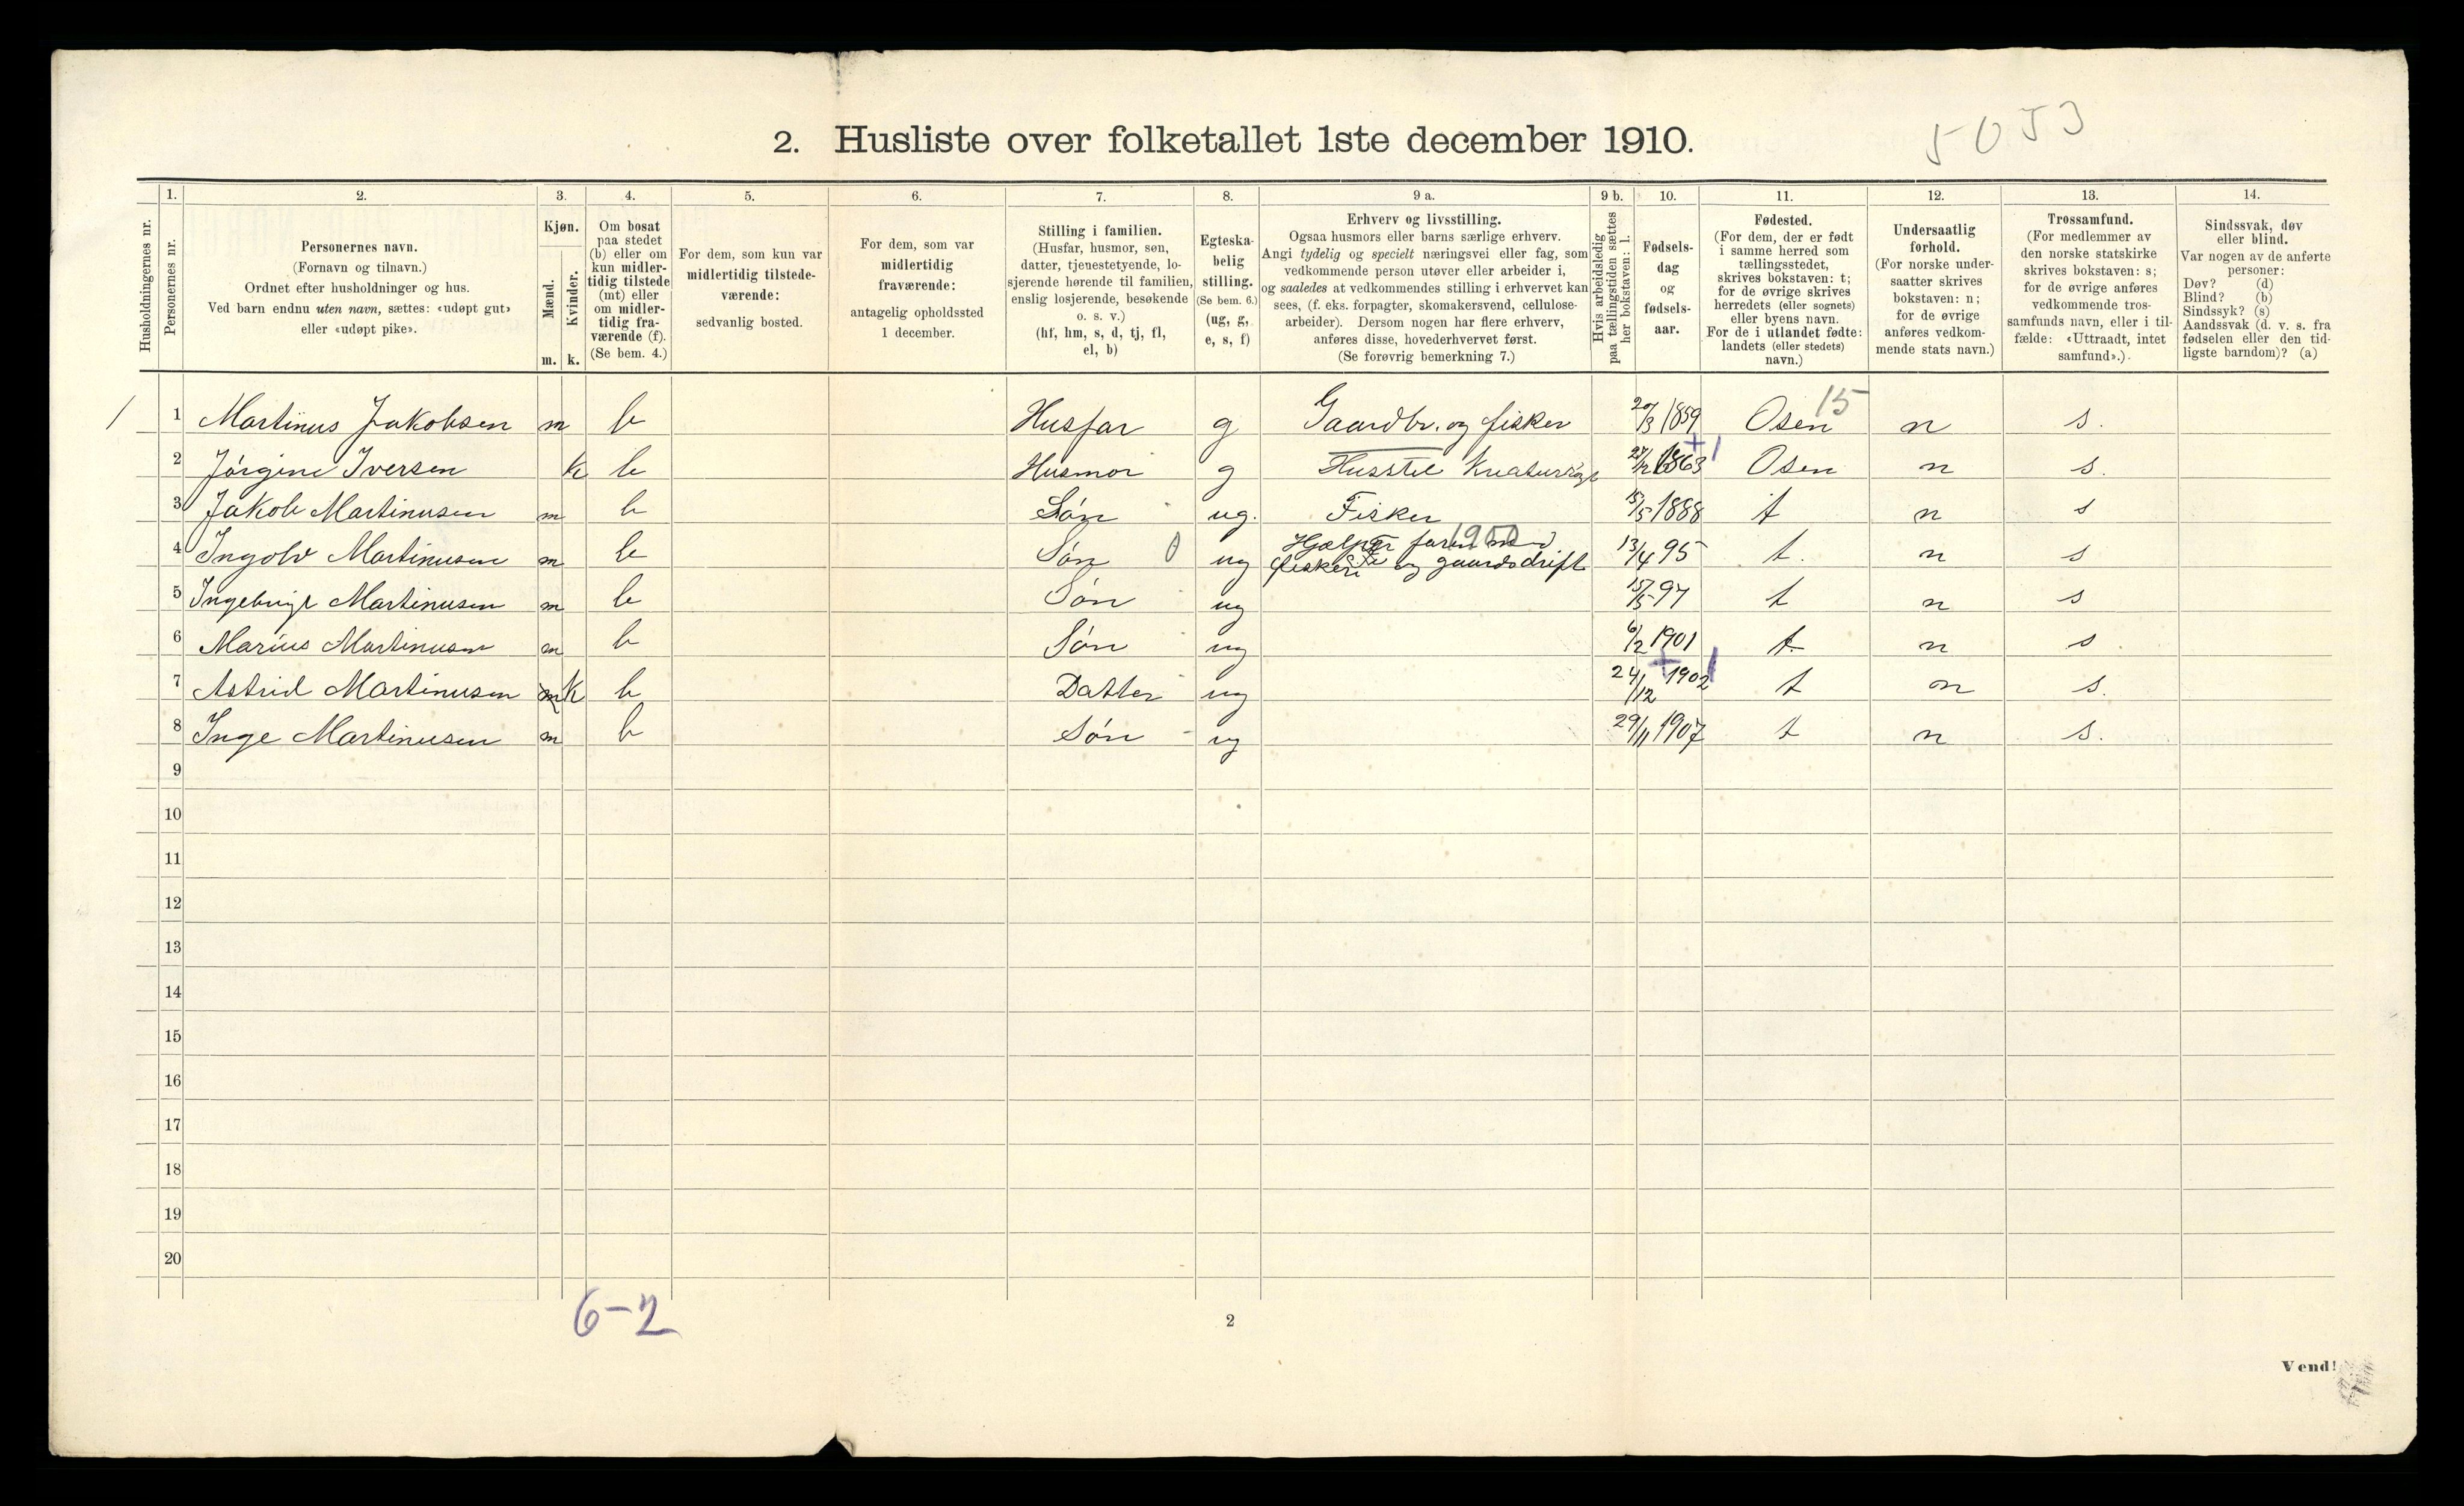 5053
2. Husliste over folketallet 1ste december 1910.
Husholdningernes nr.
1.
Personernes nr.
2.
Personernes navn.
(Fornavn og tilnavn.)
Ordnet efter husholdninger og hus.
Ved barn endnu uten navn, sættes: «udøpt gut»
eller «udøpt pike».
3.
Kjøn.
Mænd.
Kvinder.
m. k.
4.
Om bosat
paa stedet
(b) eller om
kun midler-
tidig tilstede
(mt) eller
om midler-
tidig fra-
værende (f).
(Se bem. 4.)
5.
For dem, som kun var
midlertidig tilstede-
værende:
sedvanlig bosted.
6.
For dem, som var
midlertidig
fraværende:
antagelig opholdssted
1 december.
7.
Stilling i familien.
(Husfar, husmor, søn,
datter, tjenestetyende, lo-
sjerende hørende til familien,
enslig losjerende, besøkende
o. s. v.)
(hf, hm, s, d, tj, fl,
el, b)
8.
Egteska-
belig
stilling.
(Se bem. 6.)
(ug, g,
e, s, f)
9 a.
Erhverv og livsstilling.
Ogsaa husmors eller barns særlige erhverv.
Angi tydelig og specielt næringsvei eller fag, som
vedkommende person utøver eller arbeider i,
og saaledes at vedkommendes stilling i erhvervet kan
sees, (f. eks. forpagter, skomakersvend, cellulose-
arbeider). Dersom nogen har flere erhverv,
anføres disse, hovederhvervet først.
(Se forøvrig bemerkning 7.)
9 b.
Hvis arbeidsledig
paa tællingstiden sættes
her bokstaven: l.
10.
Fødsels-
dag
og
fødsels-
aar.
11.
Fødested.
(For dem, der er født
i samme herred som
tællingsstedet,
skrives bokstaven: t;
for de øvrige skrives
herredets (eller sognets)
eller byens navn.
For de i utlandet fødte:
landets (eller stedets)
navn.)
12.
Undersaatlig
forhold.
(For norske under-
saatter skrives
bokstaven: n;
for de øvrige
anføres vedkom-
mende stats navn.)
13.
Trossamfund.
(For medlemmer av
den norske statskirke
skrives bokstaven: s;
for de øvrige anføres
vedkommende tros-
samfunds navn, eller i til-
fælde: «Uttraadt, intet
samfund».)
14.
Sindssvak, døv
eller blind.
Var nogen av de anførte
personer:
Døv? (d)
Blind? (b)
Sindssyk? (s)
Aandssvak (d. v. s. fra
fødselen eller den tid-
ligste barndom)? (a)
15
1 1 Martinus Jakobsen m b Husfar g Gaardbr. og fisker 20/3 1859 Osen n s.
2 Jørgine Iversen k b Husmor g Husstel 1863 Osen n s.
3 Jakob Martinusen m b Søn ug. Fisker 15/5 1888 t n s
1900
4 Ingolv Martinusen m b Søn 0 ug Hjælper faren med
fiskeri og gaardsdrift 13/4 95 t. n s
5 Ingebrigt Martinusen m b Søn ug 15/5 97 t n s
6 Marius Martinusen m b Søn ug 6/2 1901 t n s
7 Astrid Martinusen m k b Datter ug 24/12 1902 t n s.
8 Inge Martinusen m b Søn ug 29/11 1907 t n s.
9
10
11
12
13
14
15
16
17
18
19
20
6-2
2
Vend!